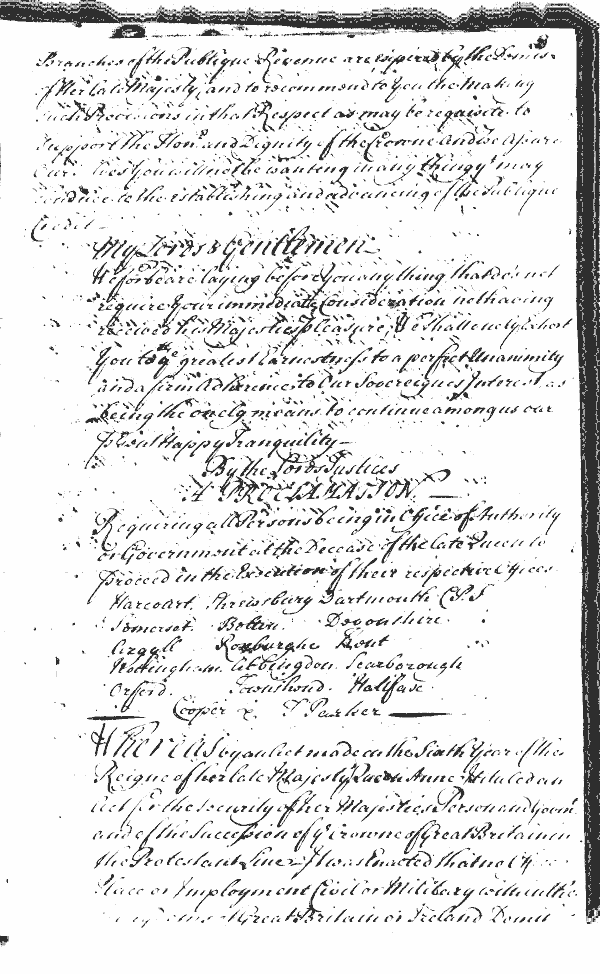 Branches of the Publique Revenue are expired by the Demise
of Her late Majesty, and to recommend to You the making
such Provisions in that Respect as may be requisite to
Support the Honr. and Dignity of the Crowne And We Assure
Our you will not be wanting in any thing yt may
Conduce to the Establishing and advancing of the Publique
Credit
My Lords & Gentlemen
We forbeare laying before You any thing that do's not
require Your immediate Consideration not having
received his Majesties pleasure, We Shall only Exhort
You wth ye. greatest Earnestness to a perfect Unanimity
and a firm Adherence to Our Sovereignes Interest as
being the onely means to continue among us our
present Happy Tranquility
By the Lords Justices
A PROCLAMATION
Requiring all Persons being in Office of Authority
or Government at the Decease of the late Queen to
proceed in the Execution of their respective Offices
Harcourt. Shrewsbury Dartmouth C.P.S
Somerset. Bolton. Devonshire.
Argyll Roxburghe Kent
Nottingham. Abbingdon. Scarborough
Orford. Townshend. Halifax
Cooper T Parker
Whereas by an Act made in the Sixth Year of the
Reigne of her late Majesty Queen Anne Intituled an
Act for the Security of her Majesties Person and Governt
and of the Succession of ye. Crowne of Great Britain in
the Protestant Line It was Enacted that no Office
Place or Employment Civil or Military within the
Kingdoms of Great Britain or Ireland Domin